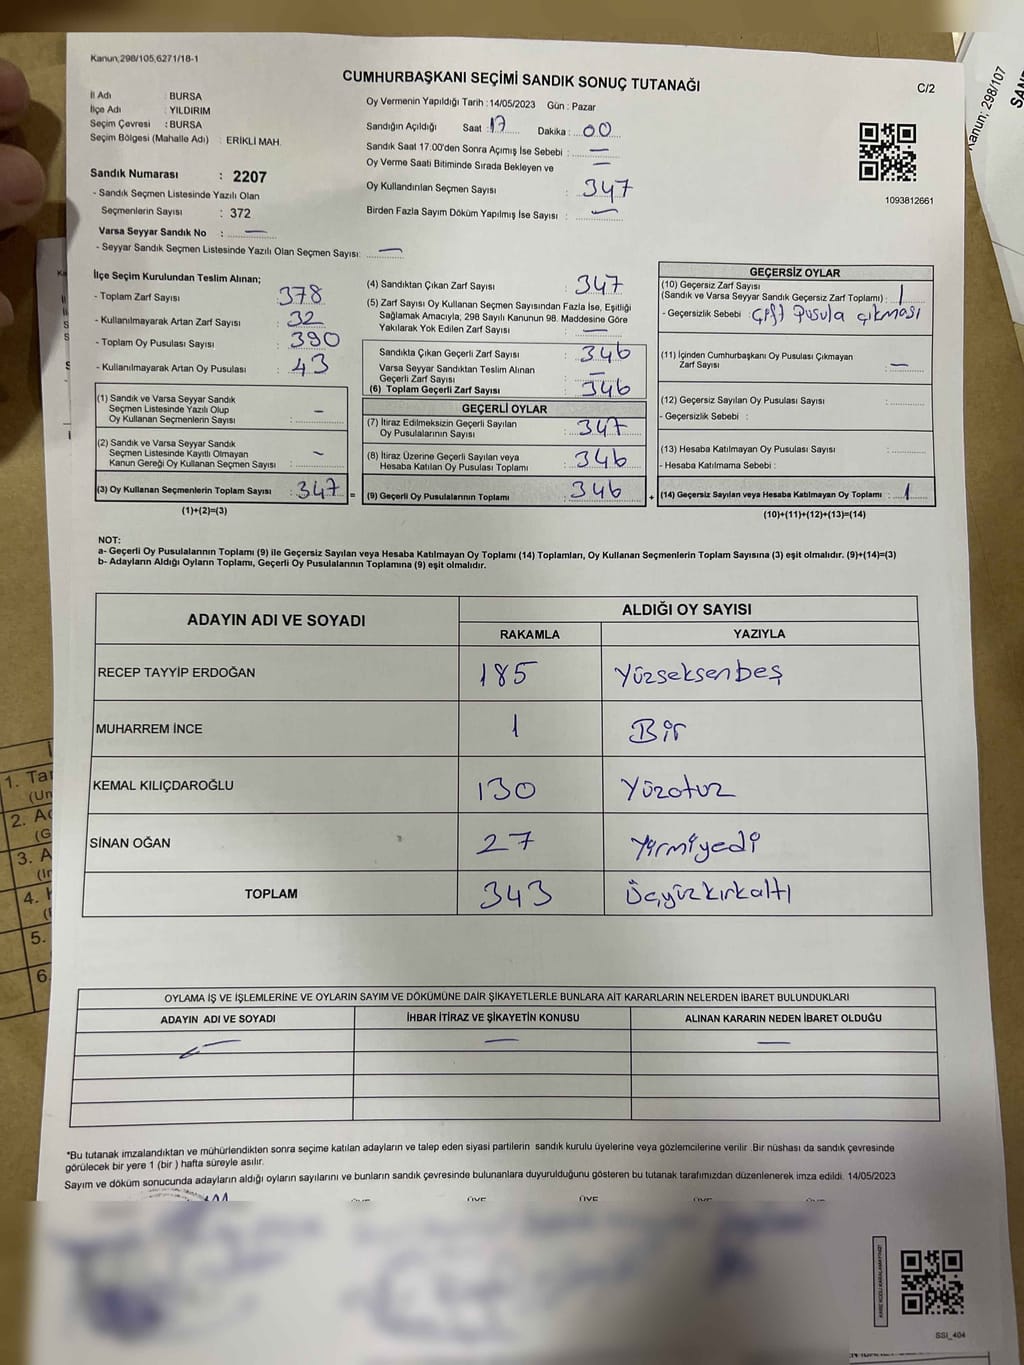 Kanun,298/105,6271/18-1
CUMHURBAŞKANI SEÇİMİ SANDIK SONUÇ TUTANAĞI
C/2
İl Adı : BURSA
İlçe Adı : YILDIRIM
Seçim Çevresi : BURSA
Seçim Bölgesi (Mahalle Adı) : ERİKLİ MAH.
Sandık Numarası : 2207
- Sandık Seçmen Listesinde Yazılı Olan
Seçmenlerin Sayısı : 372
Varsa Seyyar Sandık No : —
- Seyyar Sandık Seçmen Listesinde Yazılı Olan Seçmen Sayısı: —
Oy Vermenin Yapıldığı Tarih : 14/05/2023 Gün : Pazar
Sandığın Açıldığı Saat : 17 Dakika : 00
Sandık Saat 17:00'den Sonra Açımış İse Sebebi : —
Oy Verme Saati Bitiminde Sırada Bekleyen ve —
Oy Kullandırılan Seçmen Sayısı : 347
Birden Fazla Sayım Döküm Yapılmış İse Sayısı : —
1093812661
İlçe Seçim Kurulundan Teslim Alınan;
- Toplam Zarf Sayısı 378
- Kullanılmayarak Artan Zarf Sayısı : 32
- Toplam Oy Pusulası Sayısı : 390
- Kullanılmayarak Artan Oy Pusulası : 43
(1) Sandık ve Varsa Seyyar Sandık
Seçmen Listesinde Yazılı Olup
Oy Kullanan Seçmenlerin Sayısı : —
(2) Sandık ve Varsa Seyyar Sandık
Seçmen Listesinde Kayıtlı Olmayan
Kanun Gereği Oy Kullanan Seçmen Sayısı : —
(3) Oy Kullanan Seçmenlerin Toplam Sayısı : 347 =
(1)+(2)=(3)
(4) Sandıktan Çıkan Zarf Sayısı : 347
(5) Zarf Sayısı Oy Kullanan Seçmen Sayısından Fazla İse, Eşitliği
Sağlamak Amacıyla, 298 Sayılı Kanunun 98. Maddesine Göre
Yakılarak Yok Edilen Zarf Sayısı : —
Sandıkta Çıkan Geçerli Zarf Sayısı : 346
Varsa Seyyar Sandıktan Teslim Alınan
Geçerli Zarf Sayısı : —
(6) Toplam Geçerli Zarf Sayısı : 346
GEÇERLİ OYLAR
(7) İtiraz Edilmeksizin Geçerli Sayılan
Oy Pusulalarının Sayısı : 347
(8) İtiraz Üzerine Geçerli Sayılan veya
Hesaba Katılan Oy Pusulası Toplamı : 346
(9) Geçerli Oy Pusulalarının Toplamı : 346 +
GEÇERSİZ OYLAR
(10) Geçersiz Zarf Sayısı
(Sandık ve Varsa Seyyar Sandık Geçersiz Zarf Toplamı) : 1
- Geçersizlik Sebebi : Çift pusula çıkması
(11) İçinden Cumhurbaşkanı Oy Pusulası Çıkmayan
Zarf Sayısı : —
(12) Geçersiz Sayılan Oy Pusulası Sayısı :
- Geçersizlik Sebebi :
(13) Hesaba Katılmayan Oy Pusulası Sayısı :
- Hesaba Katılmama Sebebi :
(14) Geçersiz Sayılan veya Hesaba Katılmayan Oy Toplamı : 1
(10)+(11)+(12)+(13)=(14)
NOT:
a- Geçerli Oy Pusulalarının Toplamı (9) ile Geçersiz Sayılan veya Hesaba Katılmayan Oy Toplamı (14) Toplamları, Oy Kullanan Seçmenlerin Toplam Sayısına (3) eşit olmalıdır. (9)+(14)=(3)
b- Adayların Aldığı Oyların Toplamı, Geçerli Oy Pusulalarının Toplamına (9) eşit olmalıdır.
ADAYIN ADI VE SOYADI ALDIĞI OY SAYISI
RAKAMLA YAZIYLA
RECEP TAYYİP ERDOĞAN 185 Yüzseksenbeş
MUHARREM İNCE 1 Bir
KEMAL KILIÇDAROĞLU 130 Yüzotuz
SİNAN OĞAN 27 Yirmiyedi
TOPLAM 343 Üçyüzkırkaltı
OYLAMA İŞ VE İŞLEMLERİNE VE OYLARIN SAYIM VE DÖKÜMÜNE DAİR ŞİKAYETLERLE BUNLARA AİT KARARLARIN NELERDEN İBARET BULUNDUKLARI
ADAYIN ADI VE SOYADI İHBAR İTİRAZ VE ŞİKAYETİN KONUSU ALINAN KARARIN NEDEN İBARET OLDUĞU
— — —
*Bu tutanak imzalandıktan ve mühürlendikten sonra seçime katılan adayların ve talep eden siyasi partilerin sandık kurulu üyelerine veya gözlemcilerine verilir. Bir nüshası da sandık çevresinde
görülecek bir yere 1 (bir ) hafta süreyle asılır.
Sayım ve döküm sonucunda adayların aldığı oyların sayılarını ve bunların sandık çevresinde bulunanlara duyurulduğunu gösteren bu tutanak tarafımızdan düzenlenerek imza edildi. 14/05/2023
ÜYE ÜYE ÜYE ÜYE ÜYE
SSI_404
Kanun; 298/107
1. Ta
(Un
2. A
(G
3. A
4.
5.
6.